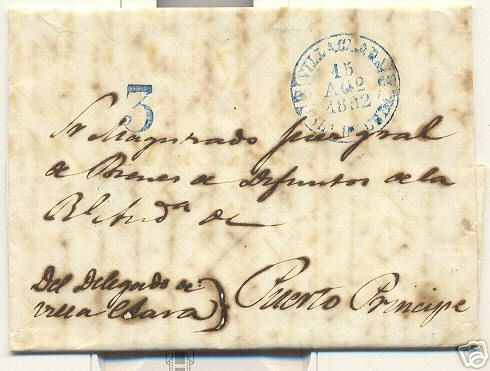 VILLA CLARA
15
AGO
1832
3
Sr Magistrado general
de Bienes de Difuntos de la
Rl Auda de
Del Delegado de
Villa Clara
Puerto Principe